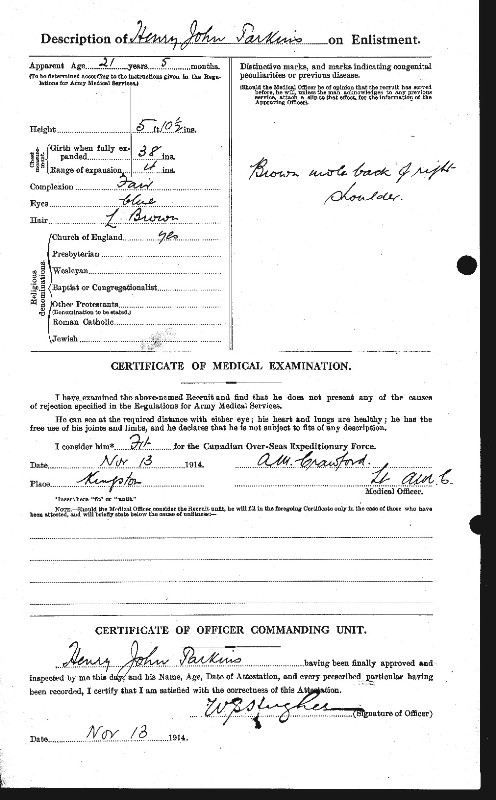 Description of Henry John Parkins on Enlistment.
Apparent Age 21 years 5 months.
(To be determined according to the instructions given in the Regulations for Army Medical Services.)
Height 5 ft 10½ ins.
Chest measurement.
Girth when fully expanded 38 ins.
Range of expansion 4 ins.
Complexion Fair
Eyes blue
Hair L Brown
Religious denominations.
Church of England yes
Presbyterian
Wesleyan
Baptist or Congregationalist
Other Protestants
(Denomination to be stated.)
Roman Catholic
Jewish
Distinctive marks, and marks indicating congenital
peculiarities or previous disease.
(Should the Medical Officer be of opinion that the recruit has served
before, he will, unless the man acknowledges to any previous
service, attach a slip to that effect, for the information of the
Approving Officer).
Brown mole back of right
shoulder.
CERTIFICATE OF MEDICAL EXAMINATION.
I have examined the above-named Recruit and find that he does not present any of the causes
of rejection specified in the Regulations for Army Medical Services.
He can see at the required distance with either eye; his heart and lungs are healthy; he has the
free use of his joints and limbs, and he declares that he is not subject to fits of any description.
I consider him* Fit for the Canadian Over-Seas Expeditionary Force.
Date Nov 13 1914. A.M. Crawford.
Place Kingston Lt A.M.C.
Medical Officer.
*Insert here "fit" or "unfit."
NOTE.—Should the Medical Officer consider the Recruit unfit, he will fill in the foregoing Certificate only in the case of those who have
been attested, and will briefly state below the cause of unfitness:—
CERTIFICATE OF OFFICER COMMANDING UNIT.
Henry John Parkins having been finally approved and
inspected by me this day, and his Name, Age, Date of Attestation, and every prescribed particular having
been recorded, I certify that I am satisfied with the correctness of this Attestation.
Hughes (Signature of Officer)
Date Nov 13 1914.